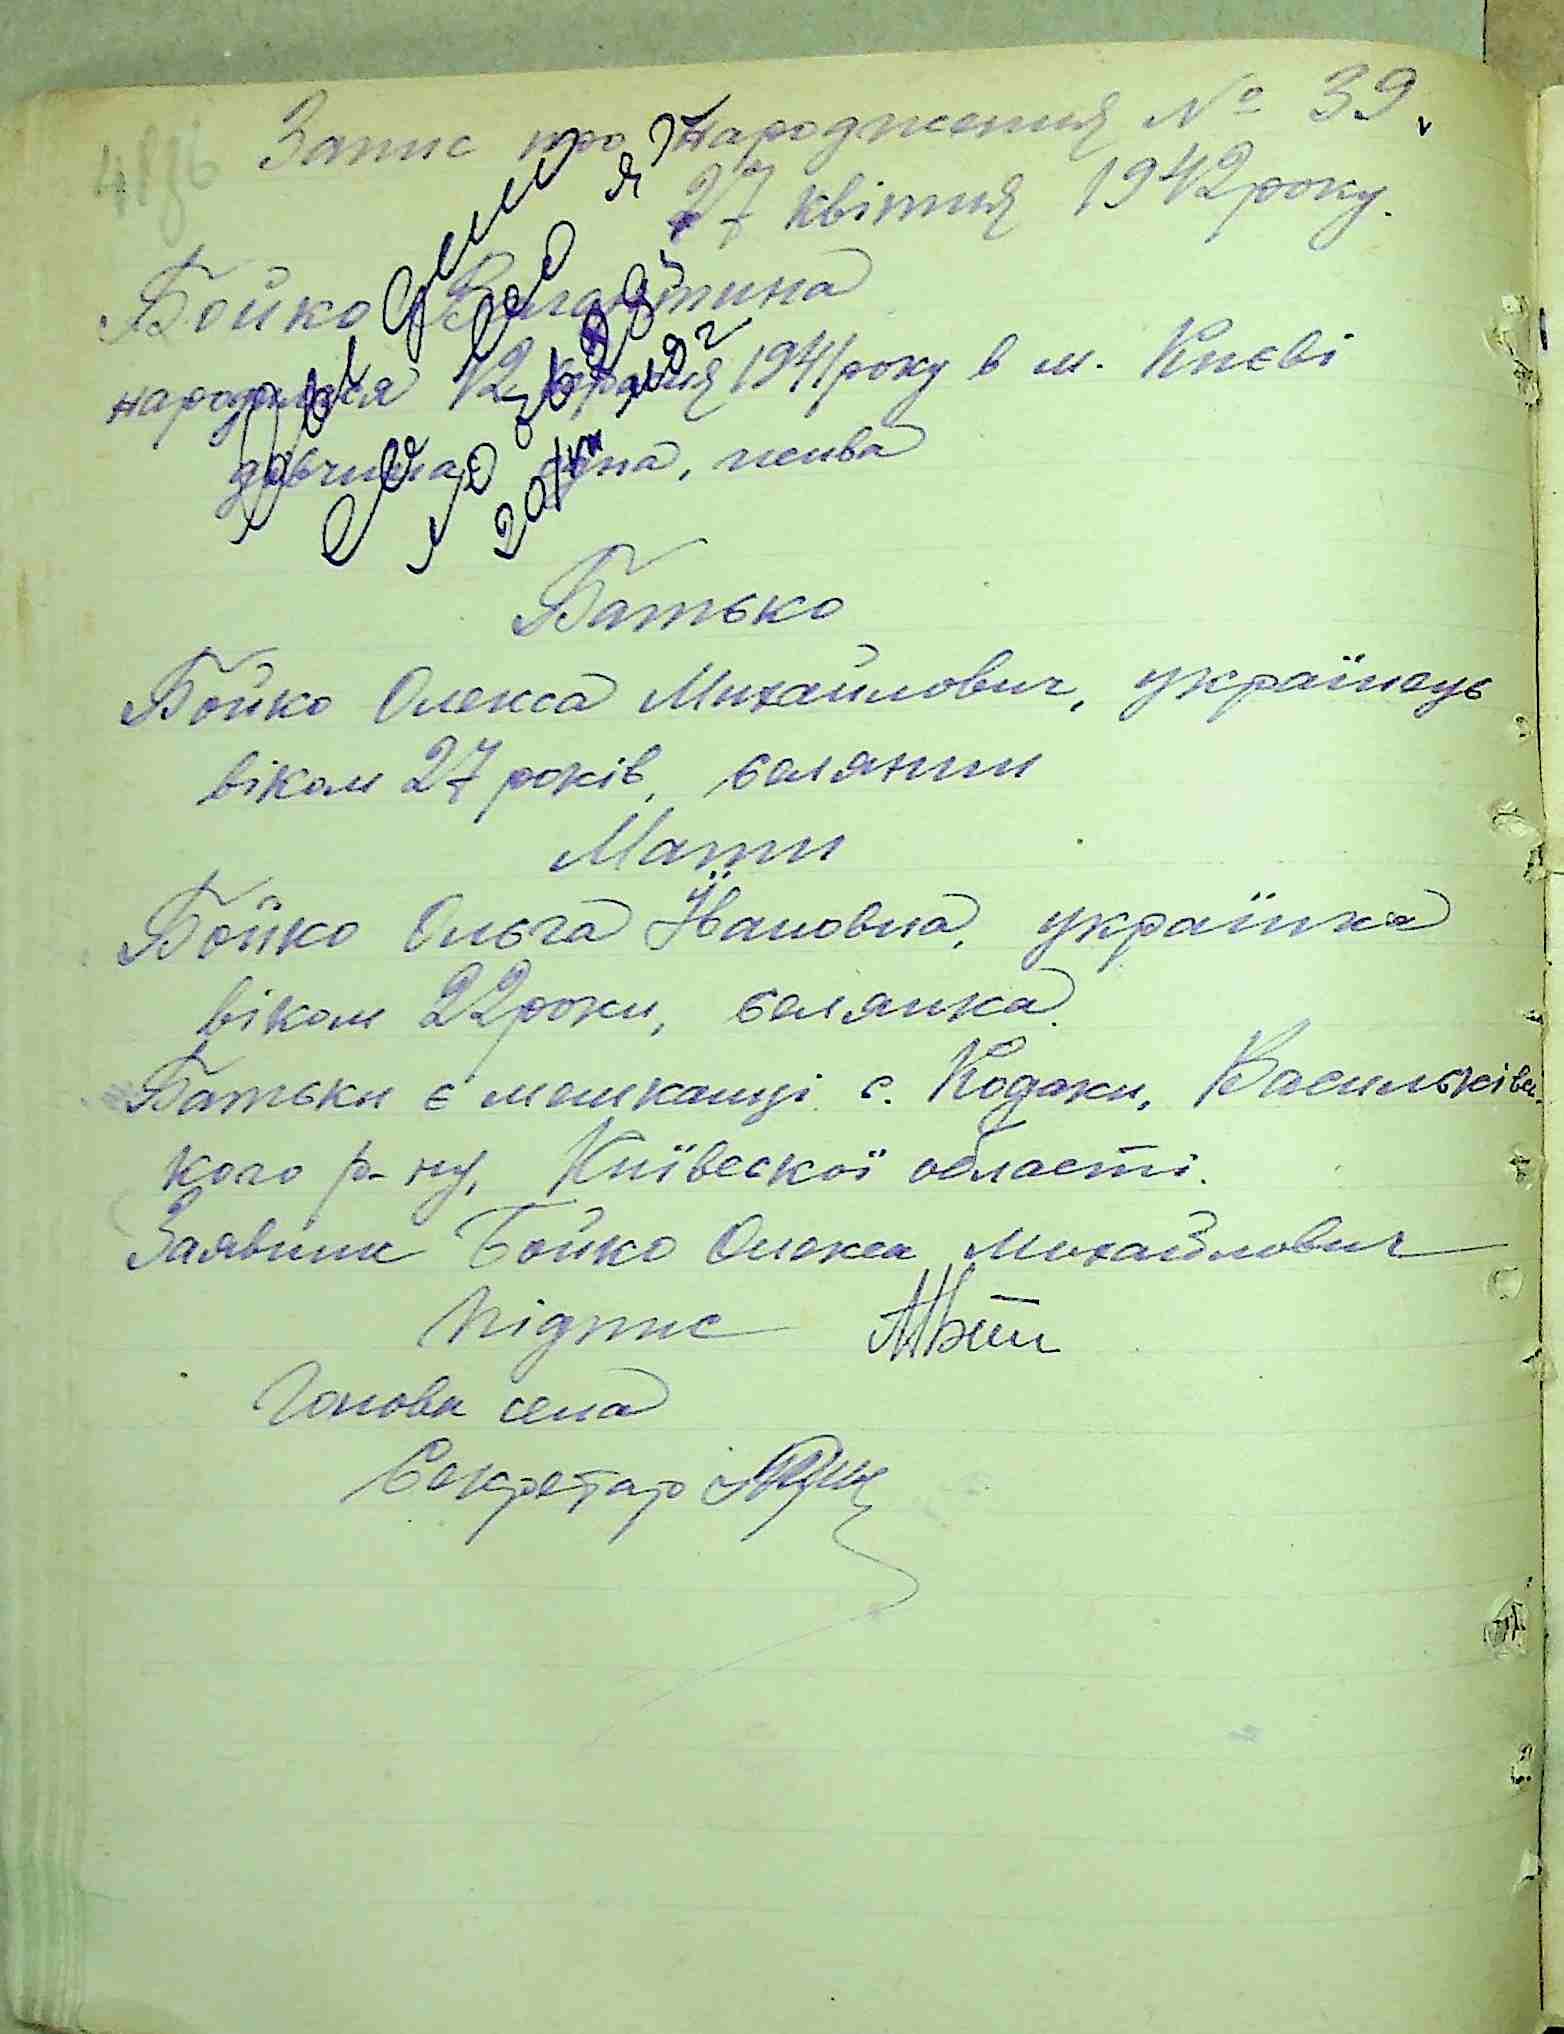 Запис про народження № 39.
27 квітня 1942 року.
Бойко Валентина
народилася 12 травня 1941 року в м. Києві
дівчина, одна, жива
Батько
Бойко Олекса Михайлович, українець
віком 27 років, селянин
Мати
Бойко Ольга Івановна, українка
віком 22 роки, селянка.
Батьки є мешканці с. Кодаки, Васильківсь
кого р-ну, Київскої області.
Заявник Бойко Олекса Михайлович
Підпис
Голова села
Секретар